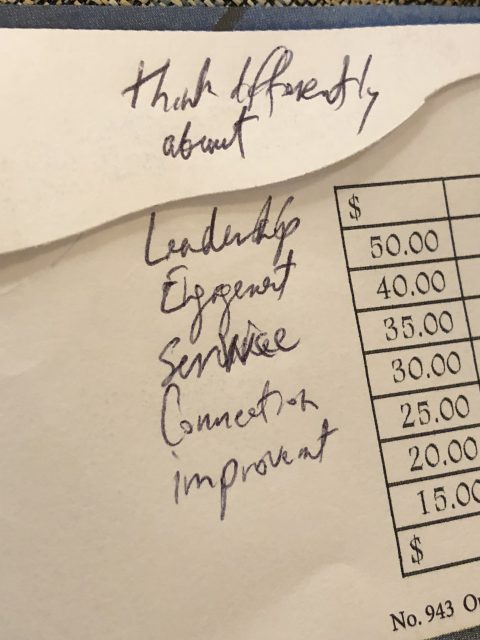 think differently
about
Leadership
Engagement
Service
Connection
improvent
$
50.00
40.00
35.00
30.00
25.00
20.00
15.00
$
No. 943